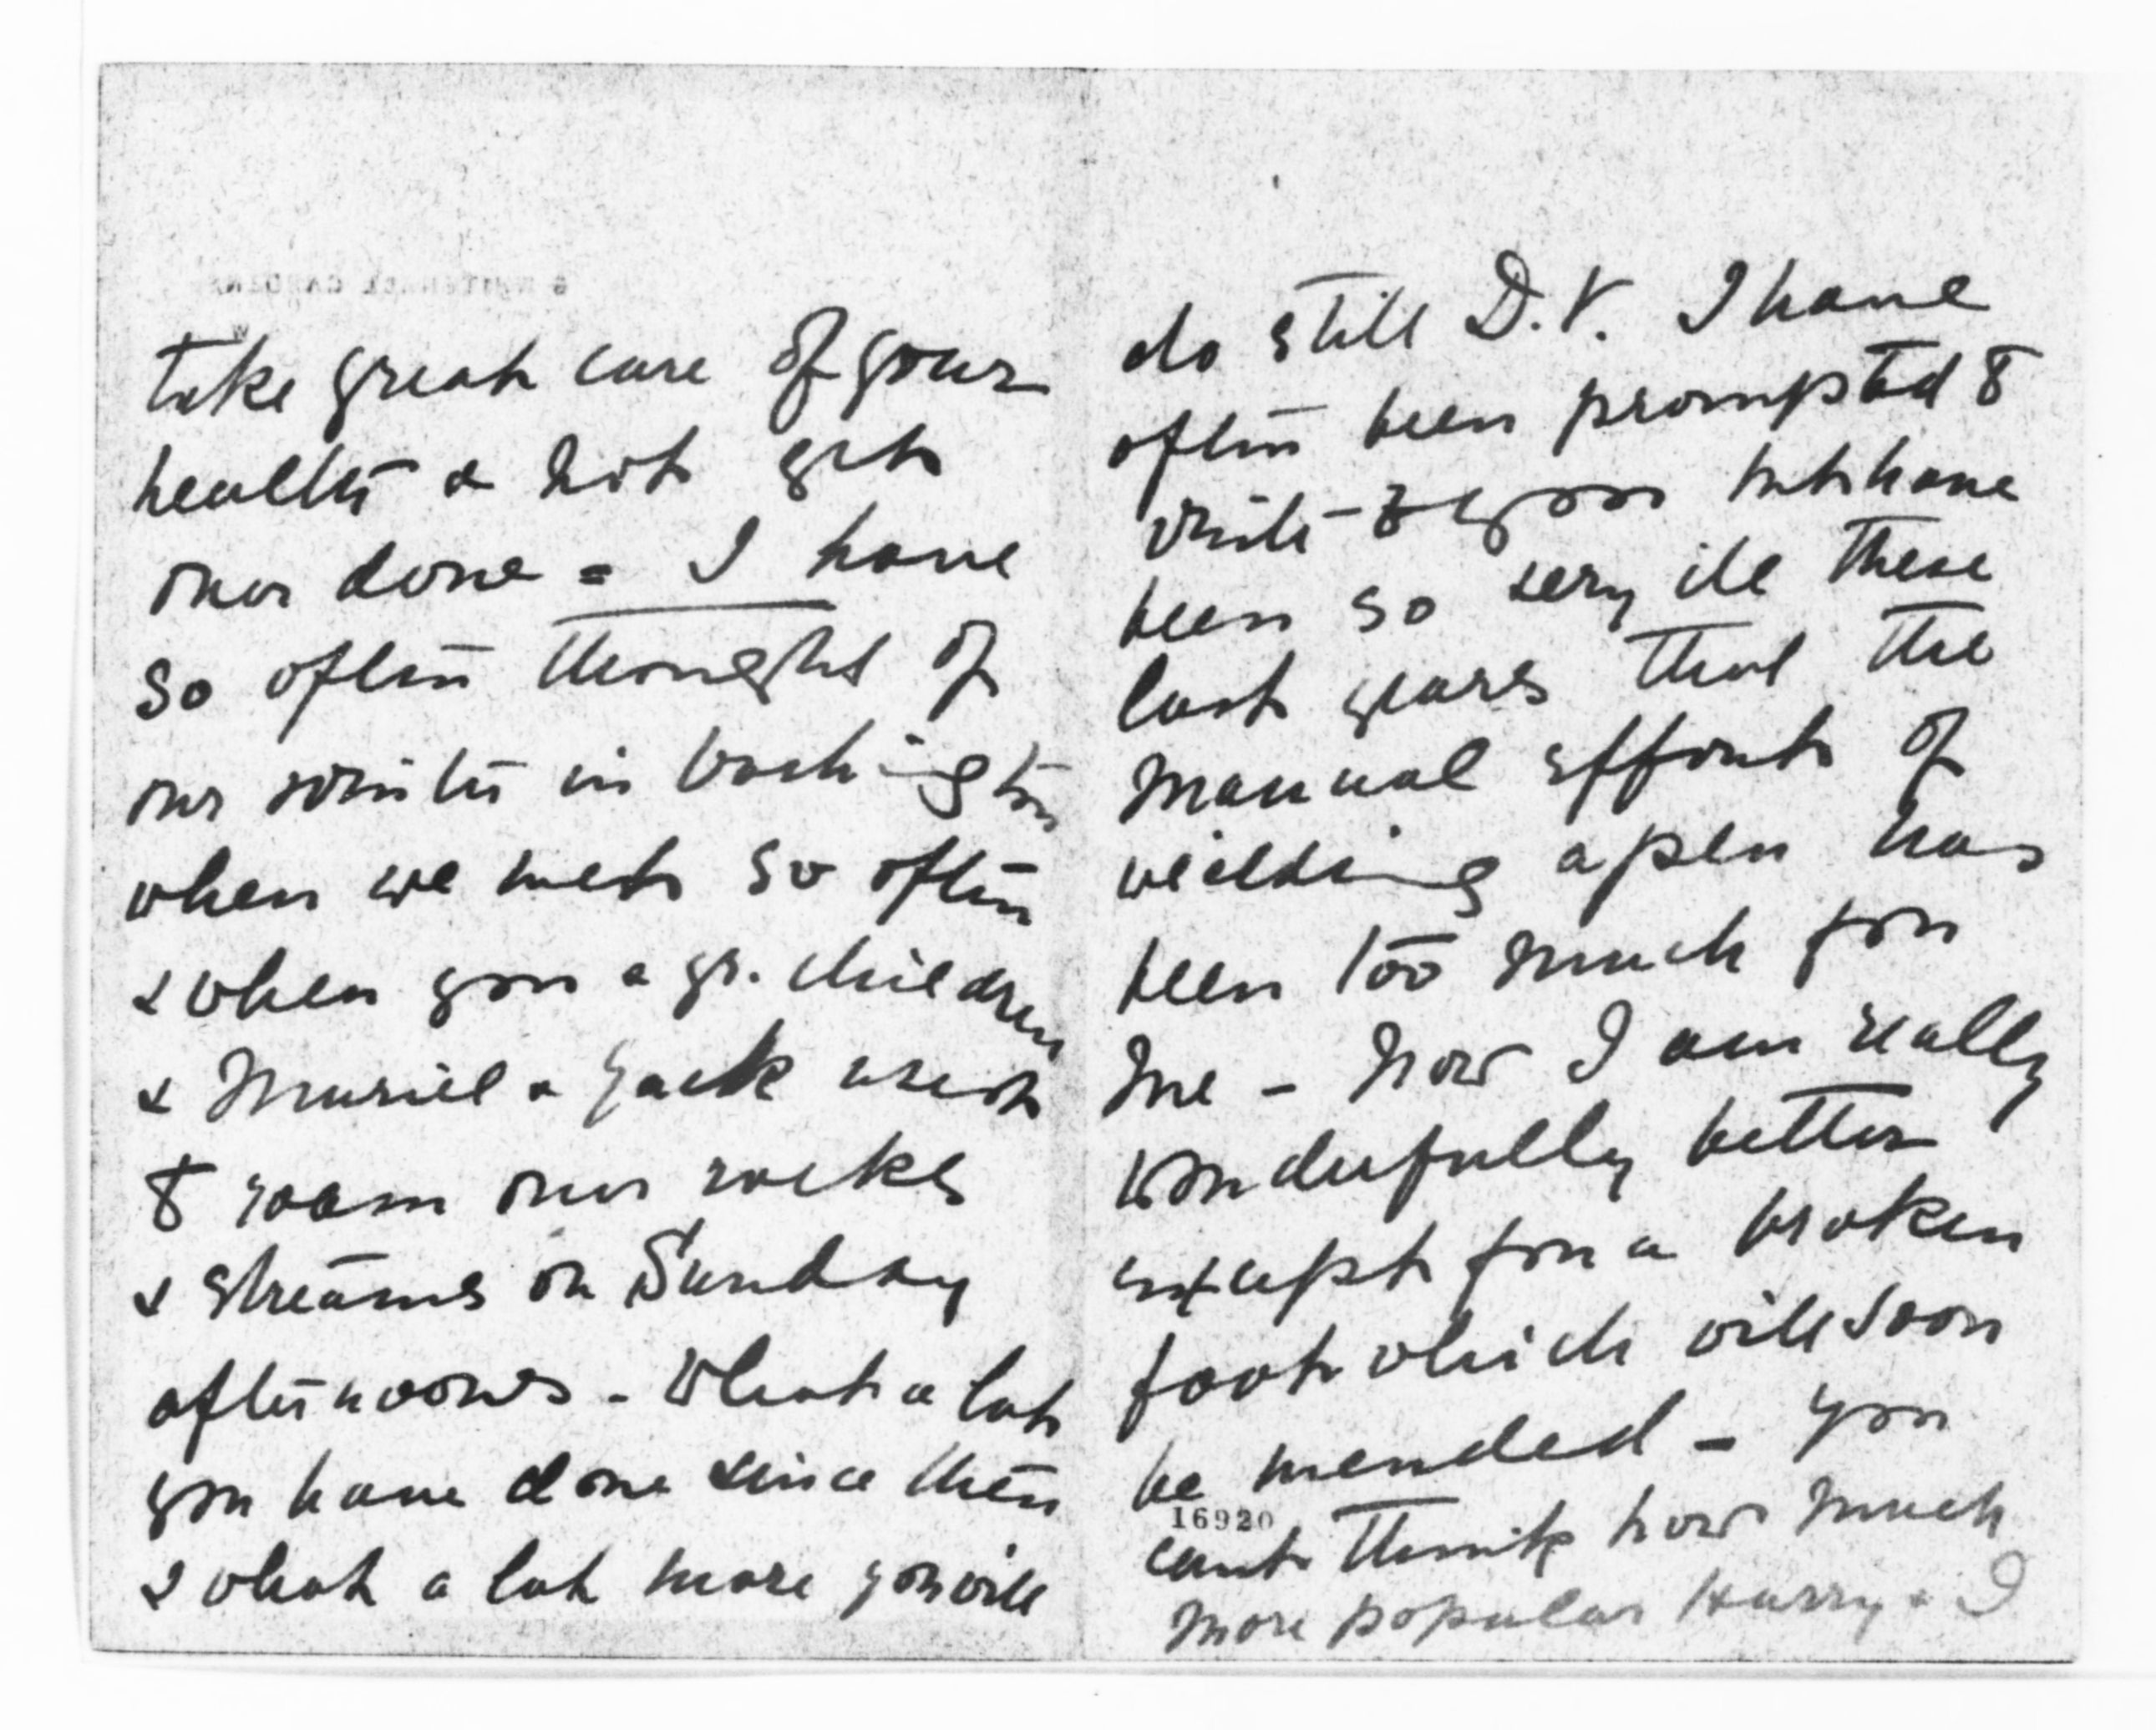 take great care of your
health & not get
over done = I have
so often thought of
our winter in Washington
when we met so often
& when you & yr. children
& Muriel & Jack used
to roam over rocks
& streams on Sunday
afternoons - What a lot
you have done since then
& what a lot more you will
do still D.V. I have
often been prompted to
write to you but have
been so very ill these
last years that the
manual effort of
wielding a pen has
been too much for
me - Now I am really
wonderfully better
except for a broken
foot which will soon
be mended - You
16920
cant think how much
more popular Harry & I